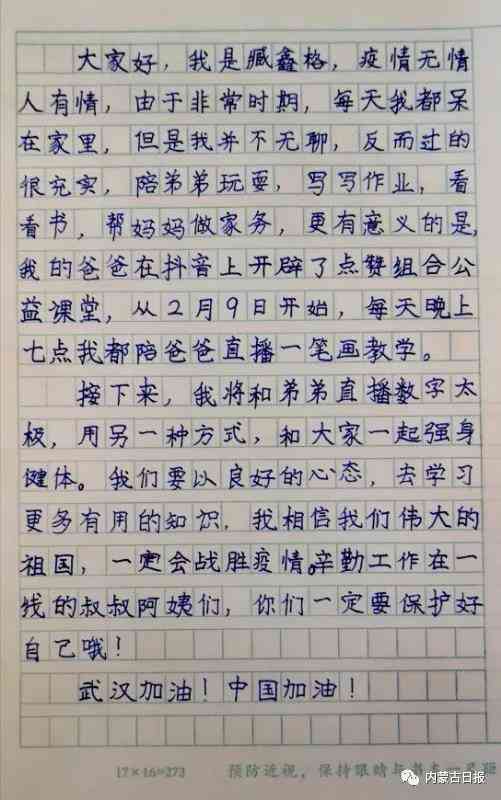 大家好，我是臧鑫格，疫情无情
人有情，由于非常时期，每天我都呆
在家里，但是我并不无聊，反而过的
很充实，陪弟弟玩耍，写写作业，看
看书，帮妈妈做家务，更有意义的是，
我的爸爸在抖音上开辟了点赞组合公
益课堂，从2月9日开始，每天晚上
七点我都陪爸爸直播一笔画教学。
接下来，我将和弟弟直播数字太
极，用另一种方式，和大家一起强身
健体。我们要以良好的心态，去学习
更多有用的知识，我相信我们伟大的
祖国，一定会战胜疫情。辛勤工作在一
线的叔叔阿姨们，你们一定要保护好
自己哦！
武汉加油！中国加油！
17×16=272 预防近视，保持眼睛与书本一尺距
内蒙古日报